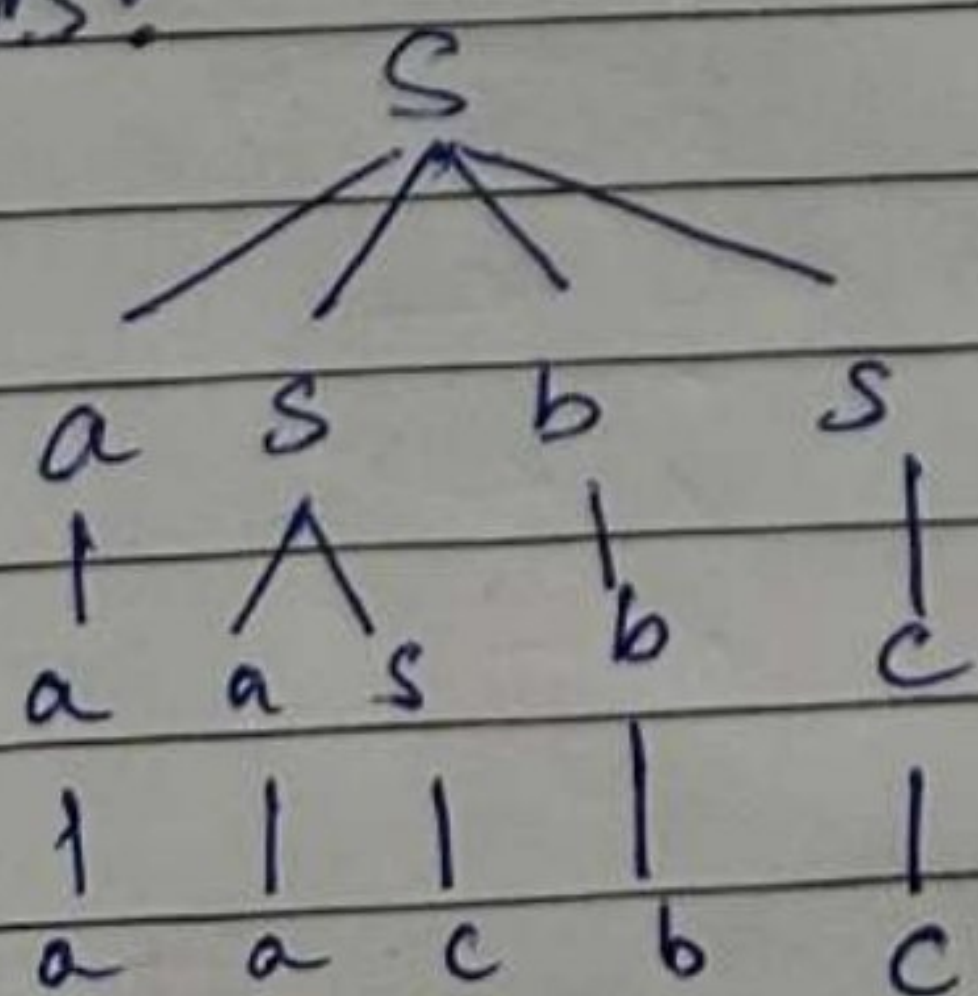 S
a S b S
a a S b C
a a c b C